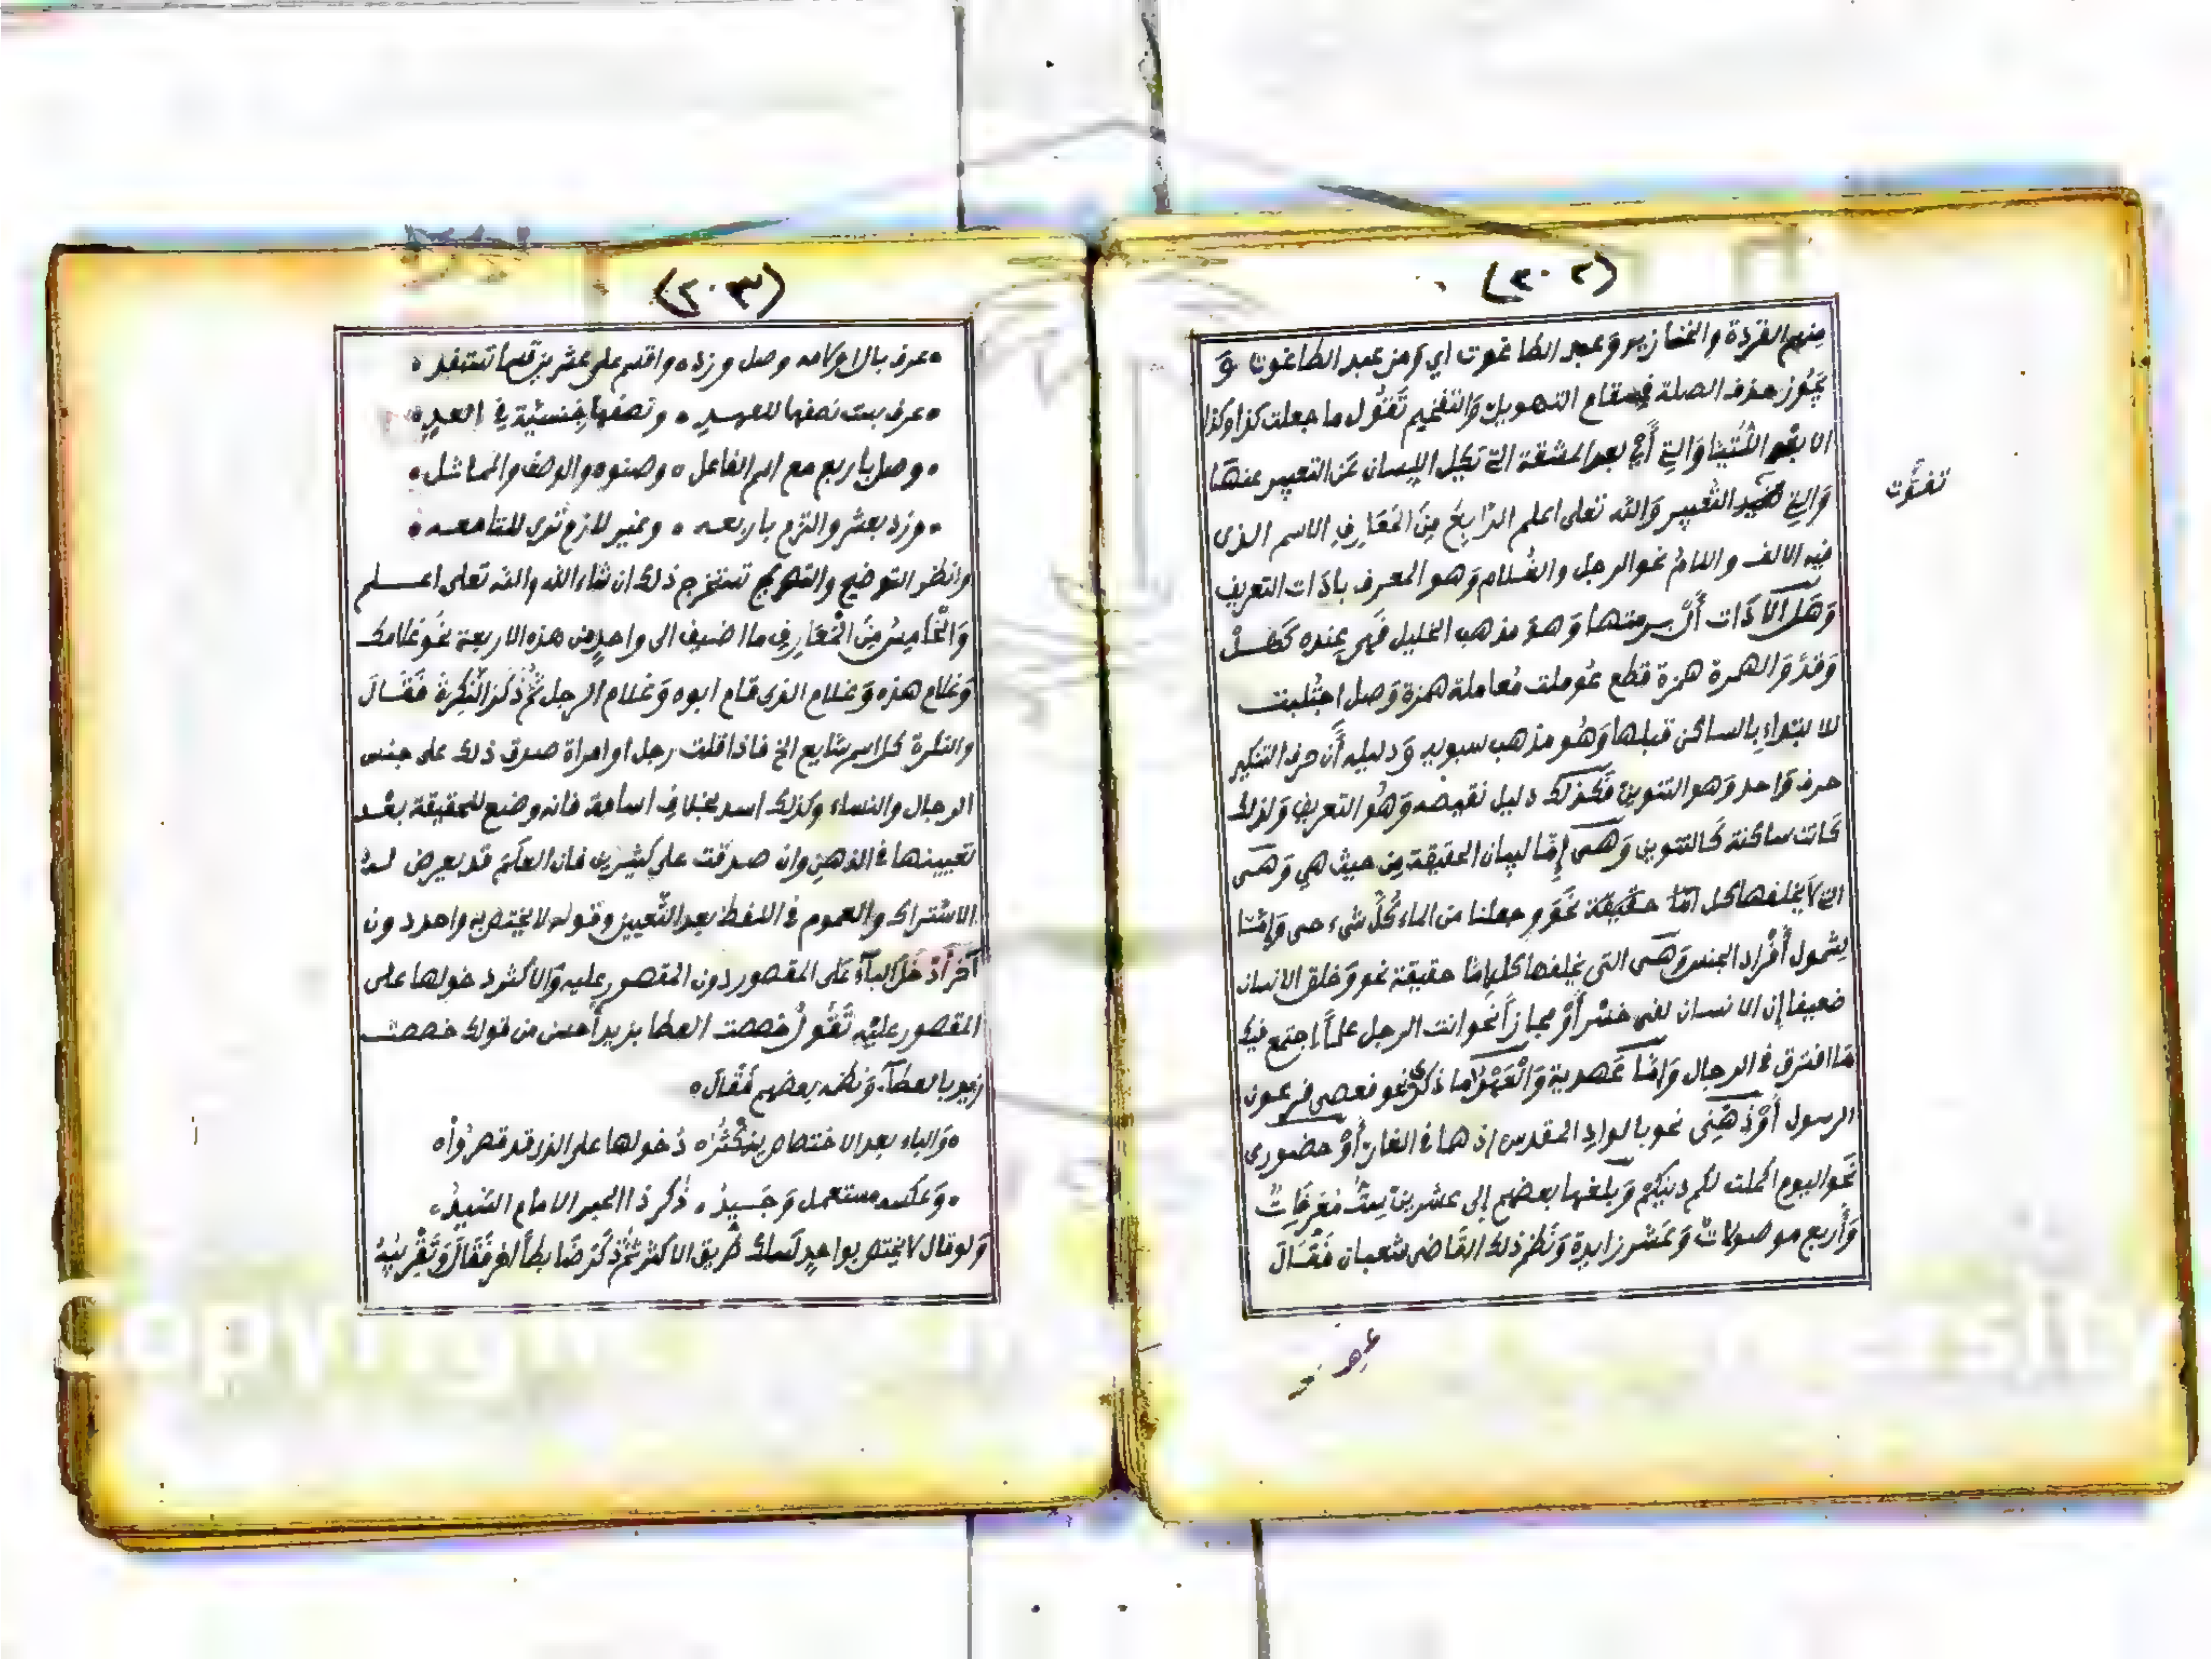 (٢٠٢)
منهم القردة والخنازير وَعبد الطاغوت اي وَمن عبد الطاغوت وَ
يَجُوز حذف الصلة في مقام التهويل وَالتفخيم تَقُول ما جعلت كذا وكذا
الا بعد اللُتَيا وَالتي أَي بعد المشقة التي تكل اللِسان عَن التعبير عنهَا
وَالتي التعبير وَاللّه تعلى اعلم الرَّابِعُ مِنَ المَعَارِفِ الاسم الذى
فيه الالف واللامُ نحو الرجل والغُلام وَهو المعرف باَدَات التعريف
وَهَل الاَدَات أَلْ برمتها وَهوَ مذهب الخليل فَهى عِنده كَهَلْ
وَقَدْ وَالهمزة همزة قطع عُوملت مُعاملة همزة وَصل اجْتُلبت
للابتداءِ بِالساكن قبلها وَهُو مذهب سبويه وَدليله أَن حرف التنكير
حرف وَاحد وَهو التنوين فَكذلك دليل نقيضه وَهُو التعريف وَلذلك
كَانت ساكنة كَالتنوين وَهى إِمَّا لبيان الحقيقة مِن حيث هي وَهى
التي لاَ يخلفها كل امَّا حقيقة نحْو وجعلنا من الماء كُلَّ شىء حى وَإِمَّا
لشمول أَفْراد الجنس وَهى التى يخلفها كل إما حقيقة نحو وَخلق الانسان
ضعيفا إن الانسان لفى خسْر أَوْ مجازاً نَحو انت الرجل علماً اجتمع فيك
مَا افترق فى الرجال وَامَّا عَهدية وَالْعَهْدُ اما ذكرى نحو فعصى فرعون
الرسول أَوْ ذِهَنِى نحو بالوادِ المقدس إذ هما فى الغار أَوْ حضورى
نَحو اليوم اكملت لكم دينكم وَبلغها بعضهم إلى عشرين سِتٌّ مُعَرِّفَات
وَأَربع موصولات وَعَشر زايدة وَنَظم ذلك القَاضى شعبان فَقَالَ
عرف
(٢٠٣)
عرف بال اولامه وصل وزده واقسم على عشرين قسما تستفد
عرف بست نصفها للعهد ونصفها جِنسيَّة في العد
وصل باربع مع اسم الفاعل وصنوه والوصف والماثل
وزد بعشر والتزم باربعه وغير لازم ترى للتامعه
وانظر التوضيح والتصريح تستخرج ذلك ان شاء الله والله تعلى اعلم
وَالْخَامِسُ مِنَ الْمَعَارِفِ ما اضيف الى واحدٍ من هذه الاربعة نحُو غلامك
وَغلام هذه وَغلام الذى قام ابوه وَغلام الرجل ثُمَّ ذَكَرَ النَّكِرَةَ فَقَالَ
والنكرة كل اسم شايع الخ فاذا قلت رجل او امراة صدق ذلك على جنس
الرجال والنساء وَكذلك اسد بخلافِ اسامة فانه وضع للحقيقة بعْد
تعيينها فى الذهنِ وان صدقت على كثيرين فان العلَمَ قد يعرض لهُ
الاشتراك والعموم فى اللفظ بعد التَّعيين وقوله لا يختص به واحد دون
آخر أَدْخَلَ البآءَ عَلَى المقصور دون المقصور عليه وَالاكثر دخولها على
المقصور عليْهِ تَقُولُ خصصت العطا بزيد أَحسن من قولك خصصت
زيدا بالعطآ وَنظمه بعضهم فَقَالَ
وَالباء بعد الاختصاص يكْثُرُ دُخولها على الذى قد قصرُواْ
وَعكسه مستعمل وَجَيِّدُ ذُكر ذا الحبر الامام السَّيِّدُ
وَلو قال لا يختص بواحدٍ لَسلك طَريق الاكثر ثُمَّ ذَكَرَ ضَابطاً اخر فَقَالَ وَتَقْرِيبُهُ